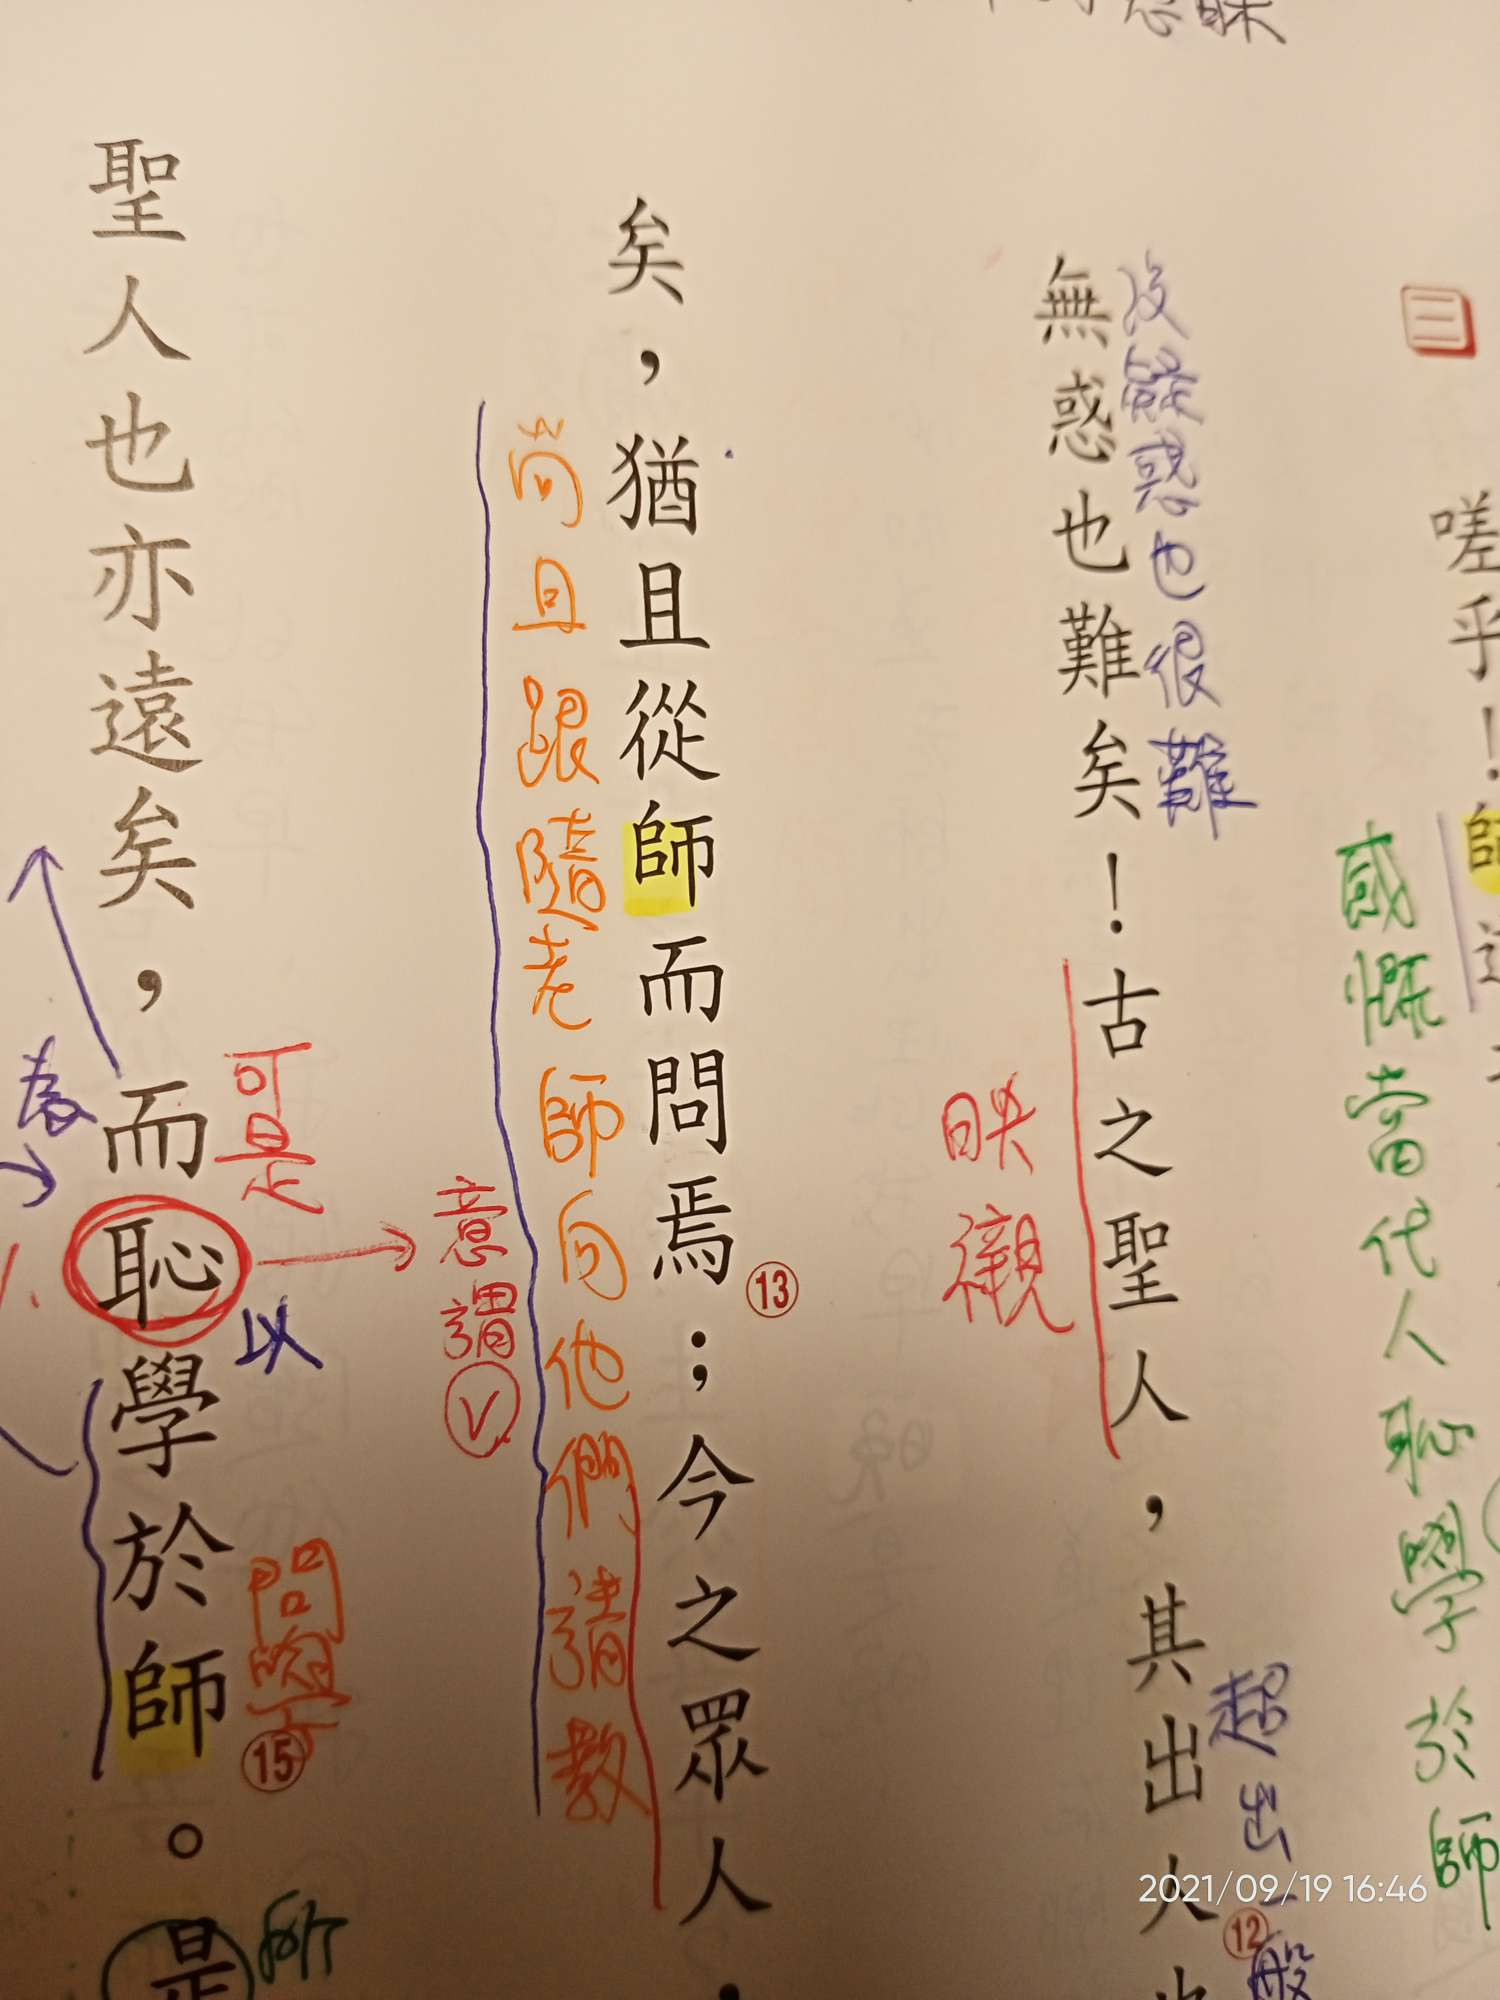 三
嗟乎！師
感慨當代人恥學於師
沒疑惑也很難
無惑也難矣！古之聖人，其出人也
超出一般
12
映襯
矣，猶且從師而問焉；今之眾人，
13
尚且跟隨老師向他們請教
意謂
V
可是
以
問學
聖人也亦遠矣，而恥學於師。是
15
所
2021/09/19 16:46